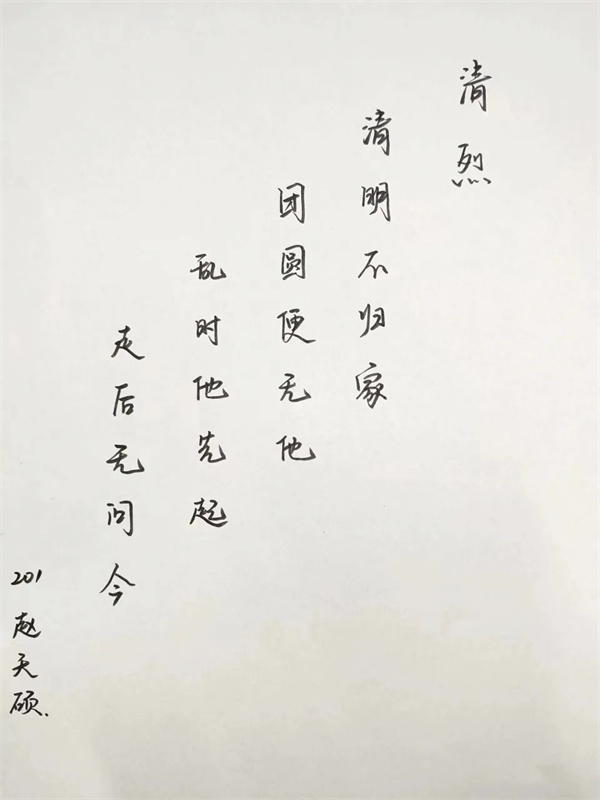 清烈
清明不归家
团圆便无他
乱时他先起
走后无问今
201赵天硕.